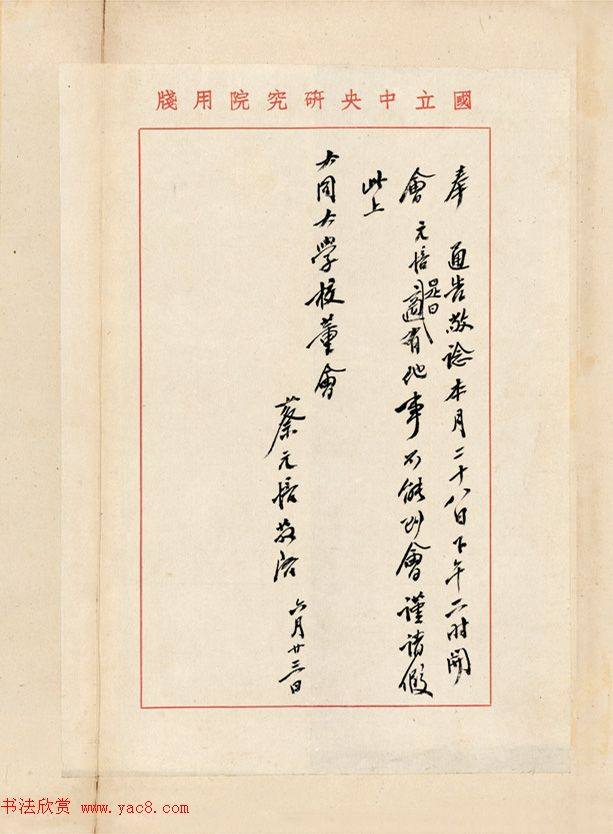 國立中央研究院用牋
奉 通告敬諗本月二十八日下午二時開
會元培是日適有他事不能到會謹請假
此上
大同大學校董會
蔡元培敬啓 六月廿三日
书法欣赏 www.yac8.com